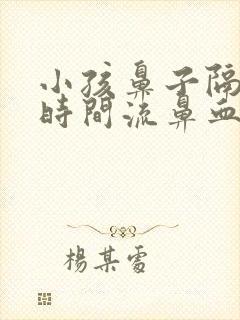 小孩鼻子隔
時間流鼻血
楊某霞